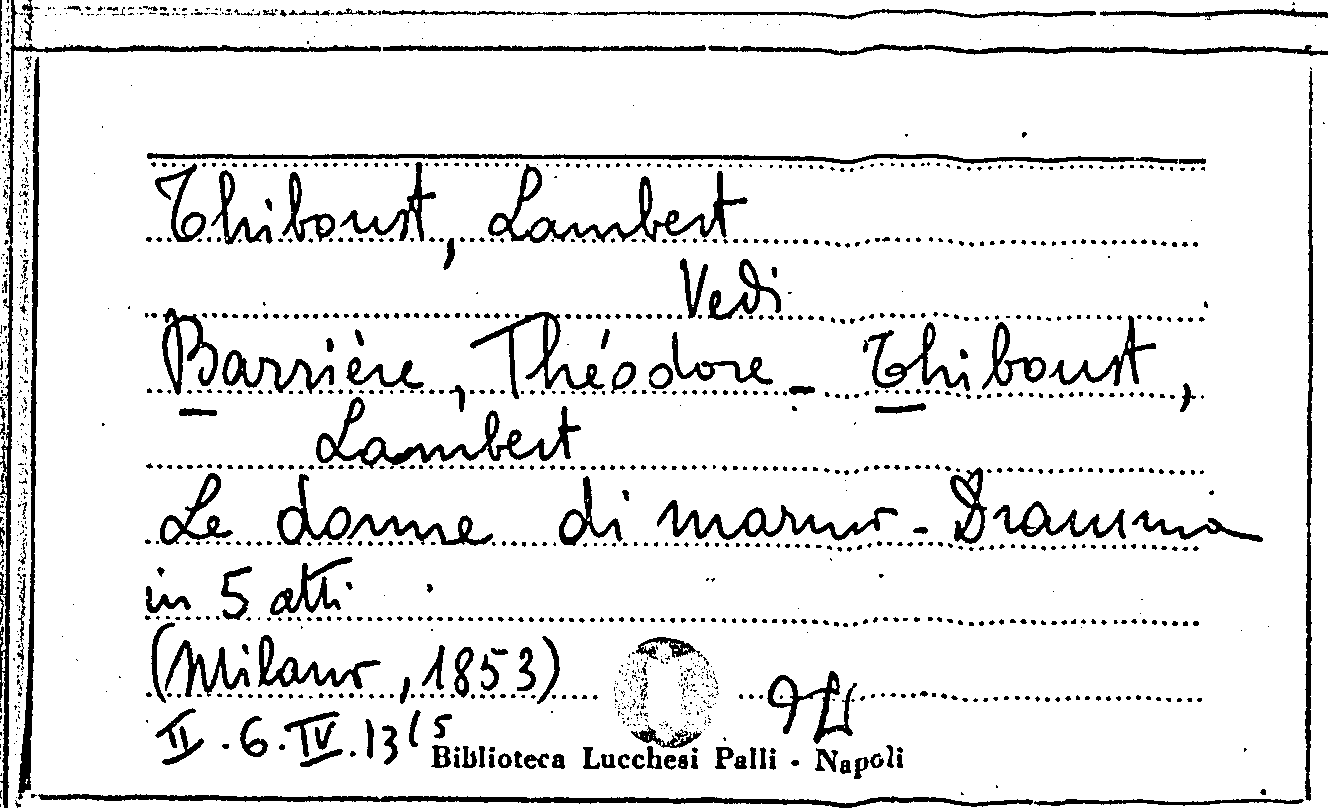 Thiboust, Lambert
Vedi
Barrière, Théodore - Thiboust,
Lambert
Le donne di marmo - Dramma
in 5 atti
(Milano, 1853)
II.6.IV.13(5
Biblioteca Lucchesi Palli - Napoli